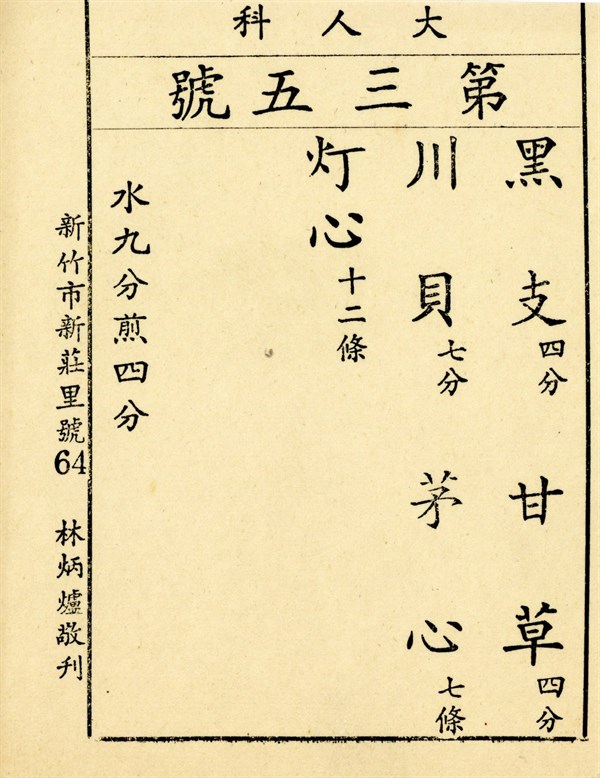 大人科
第三五號
黑支四分 甘草四分
川貝七分 茅心七條
灯心十二條
水九分煎四分
新竹市新莊里號64 林炳爐敬刊